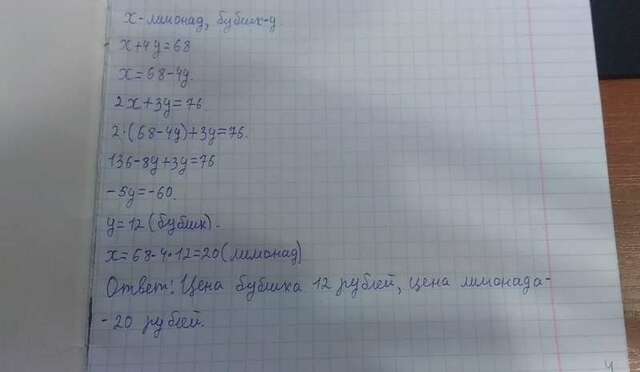 х-лимонад, бублик-у
х+4у=68
х=68-4у.
2х+3у=76.
2·(68-4у)+3у=76.
136-8у+3у=76
-5у=-60.
у=12(бублик).
х=68-4·12=20(лимонад)
Ответ: Цена бублика 12 рублей, цена лимонада-
-20 рублей.